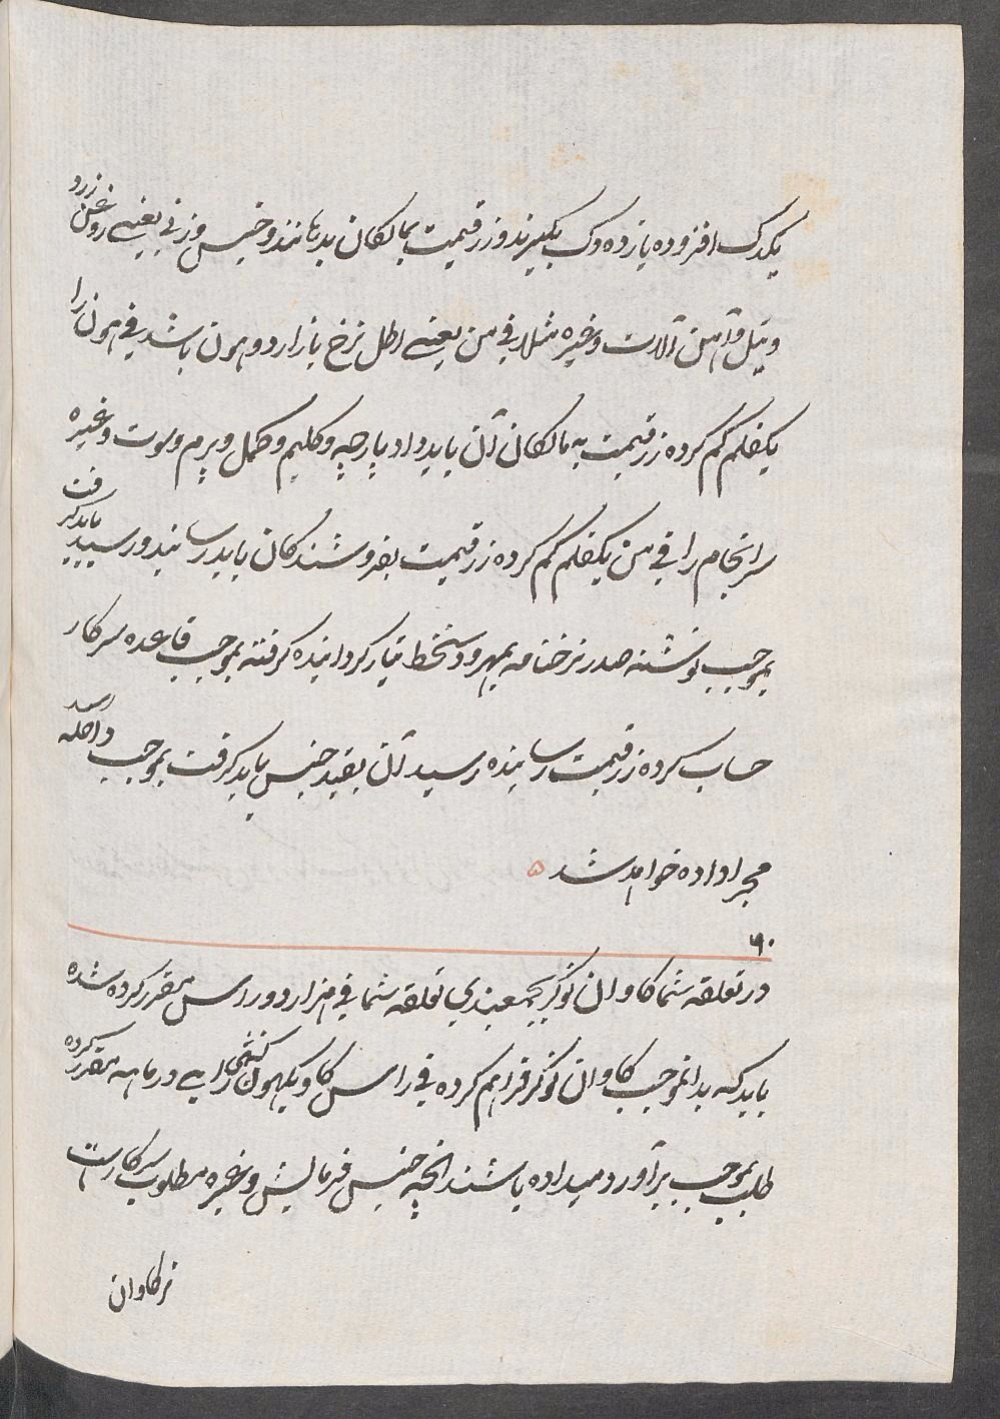 یکدک افزوده یازده دک بگیرند و زر قیمت بمالکان بدهانند و جنس وزنی یعنی روغن زرد
و تیل و آهن آلات و غیره مثلا فی من یعنی رطل نرخ بازار دو هون باشد فی هون را
یکفلم کم کرده زر قیمت به مالکان آن باید داد پارچه و کلیم و کمل و پرم و سوت و غیره
سرانجام را فی من یکفلم کم کرده زر قیمت بفروشندکان باید رسانید و رسید باید کرفت
بموجب نوشته صدر نرخنامه بمهر و دستخط تیار کردانیده کرفته بموجب قاعده سرکار
حساب کرده زر قیمت رسانیده رسید آن بقید جنس باید کرفت بموجب رسد داخله
مجرا داده خواهد شد ۵
۹۰
در تعلقه شما کاوان نوکر بجمعبندی تعلقه شما فی هزار دو راس مقرر کرده شده
باید که بدانموجب کاوان نوکر فراهم کرده فی راس کاو یکهون کنتهی رایی درماهه مقرر کرده
طلب بموجب برآورد میداده باشند انچه جنس فرمایش و غیره مطلوب سرکارست
نرکاوان